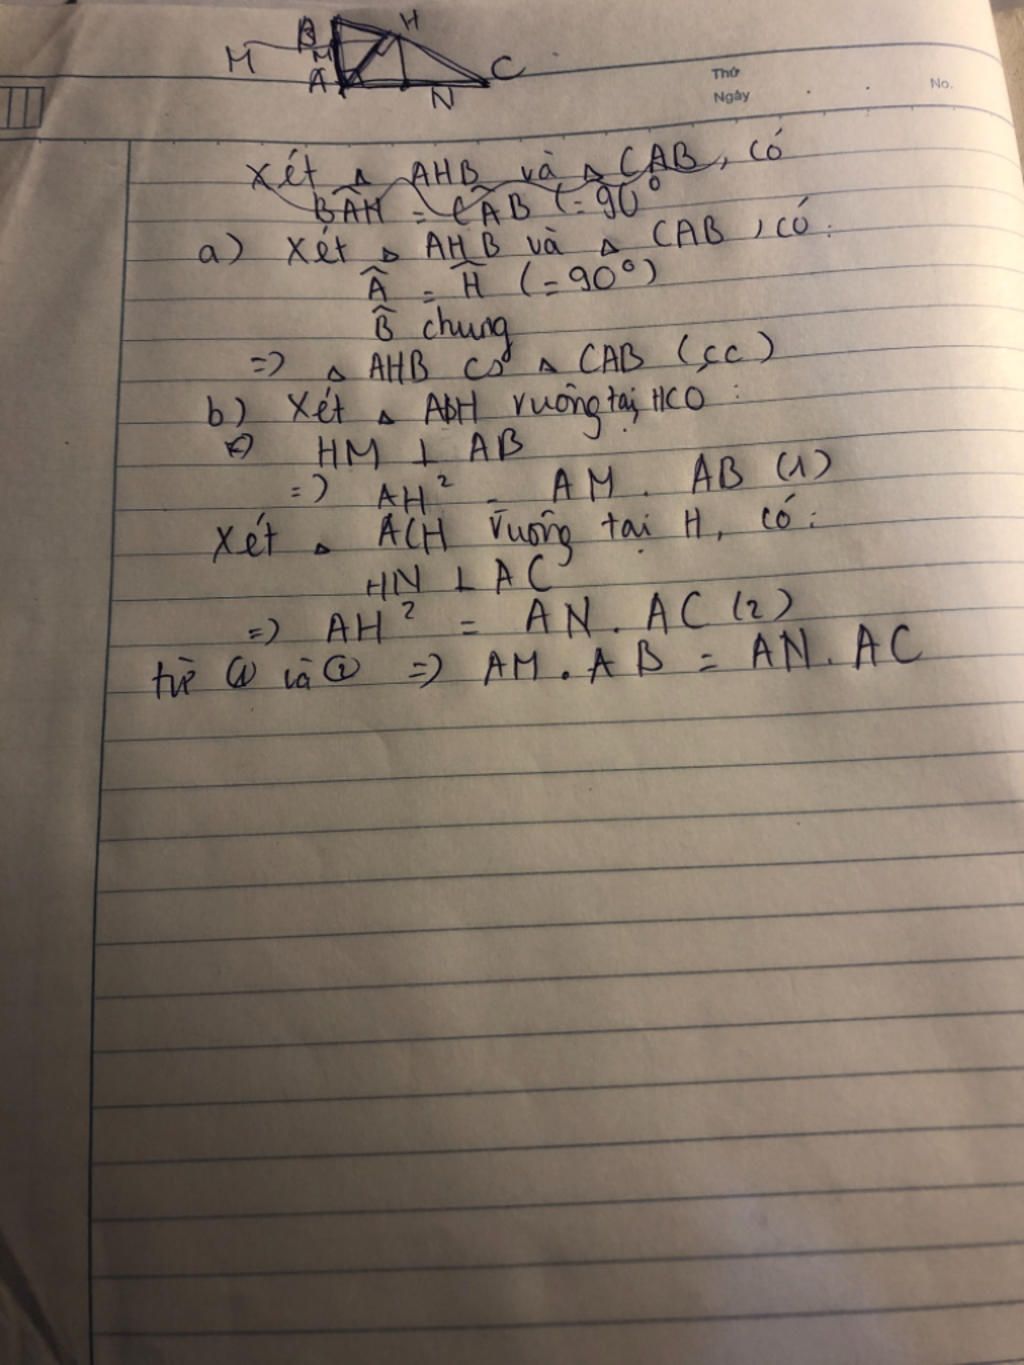 B H
M M
A C
N
Thứ
Ngày No.
Xét △ AHB và △ CAB, có
BÂH = CÂB (= 90°
a) Xét △ AHB và △ CAB, có:
Â = Ĥ (= 90°)
B̂ chung
=> △ AHB ∽ △ CAB (gg)
b) Xét △ ABH vuông tại H có :
HM ⊥ AB
=> AH² = AM . AB (1)
Xét △ ACH vuông tại H, có:
HN ⊥ AC
=> AH² = AN . AC (2)
từ ① và ② => AM . AB = AN . AC